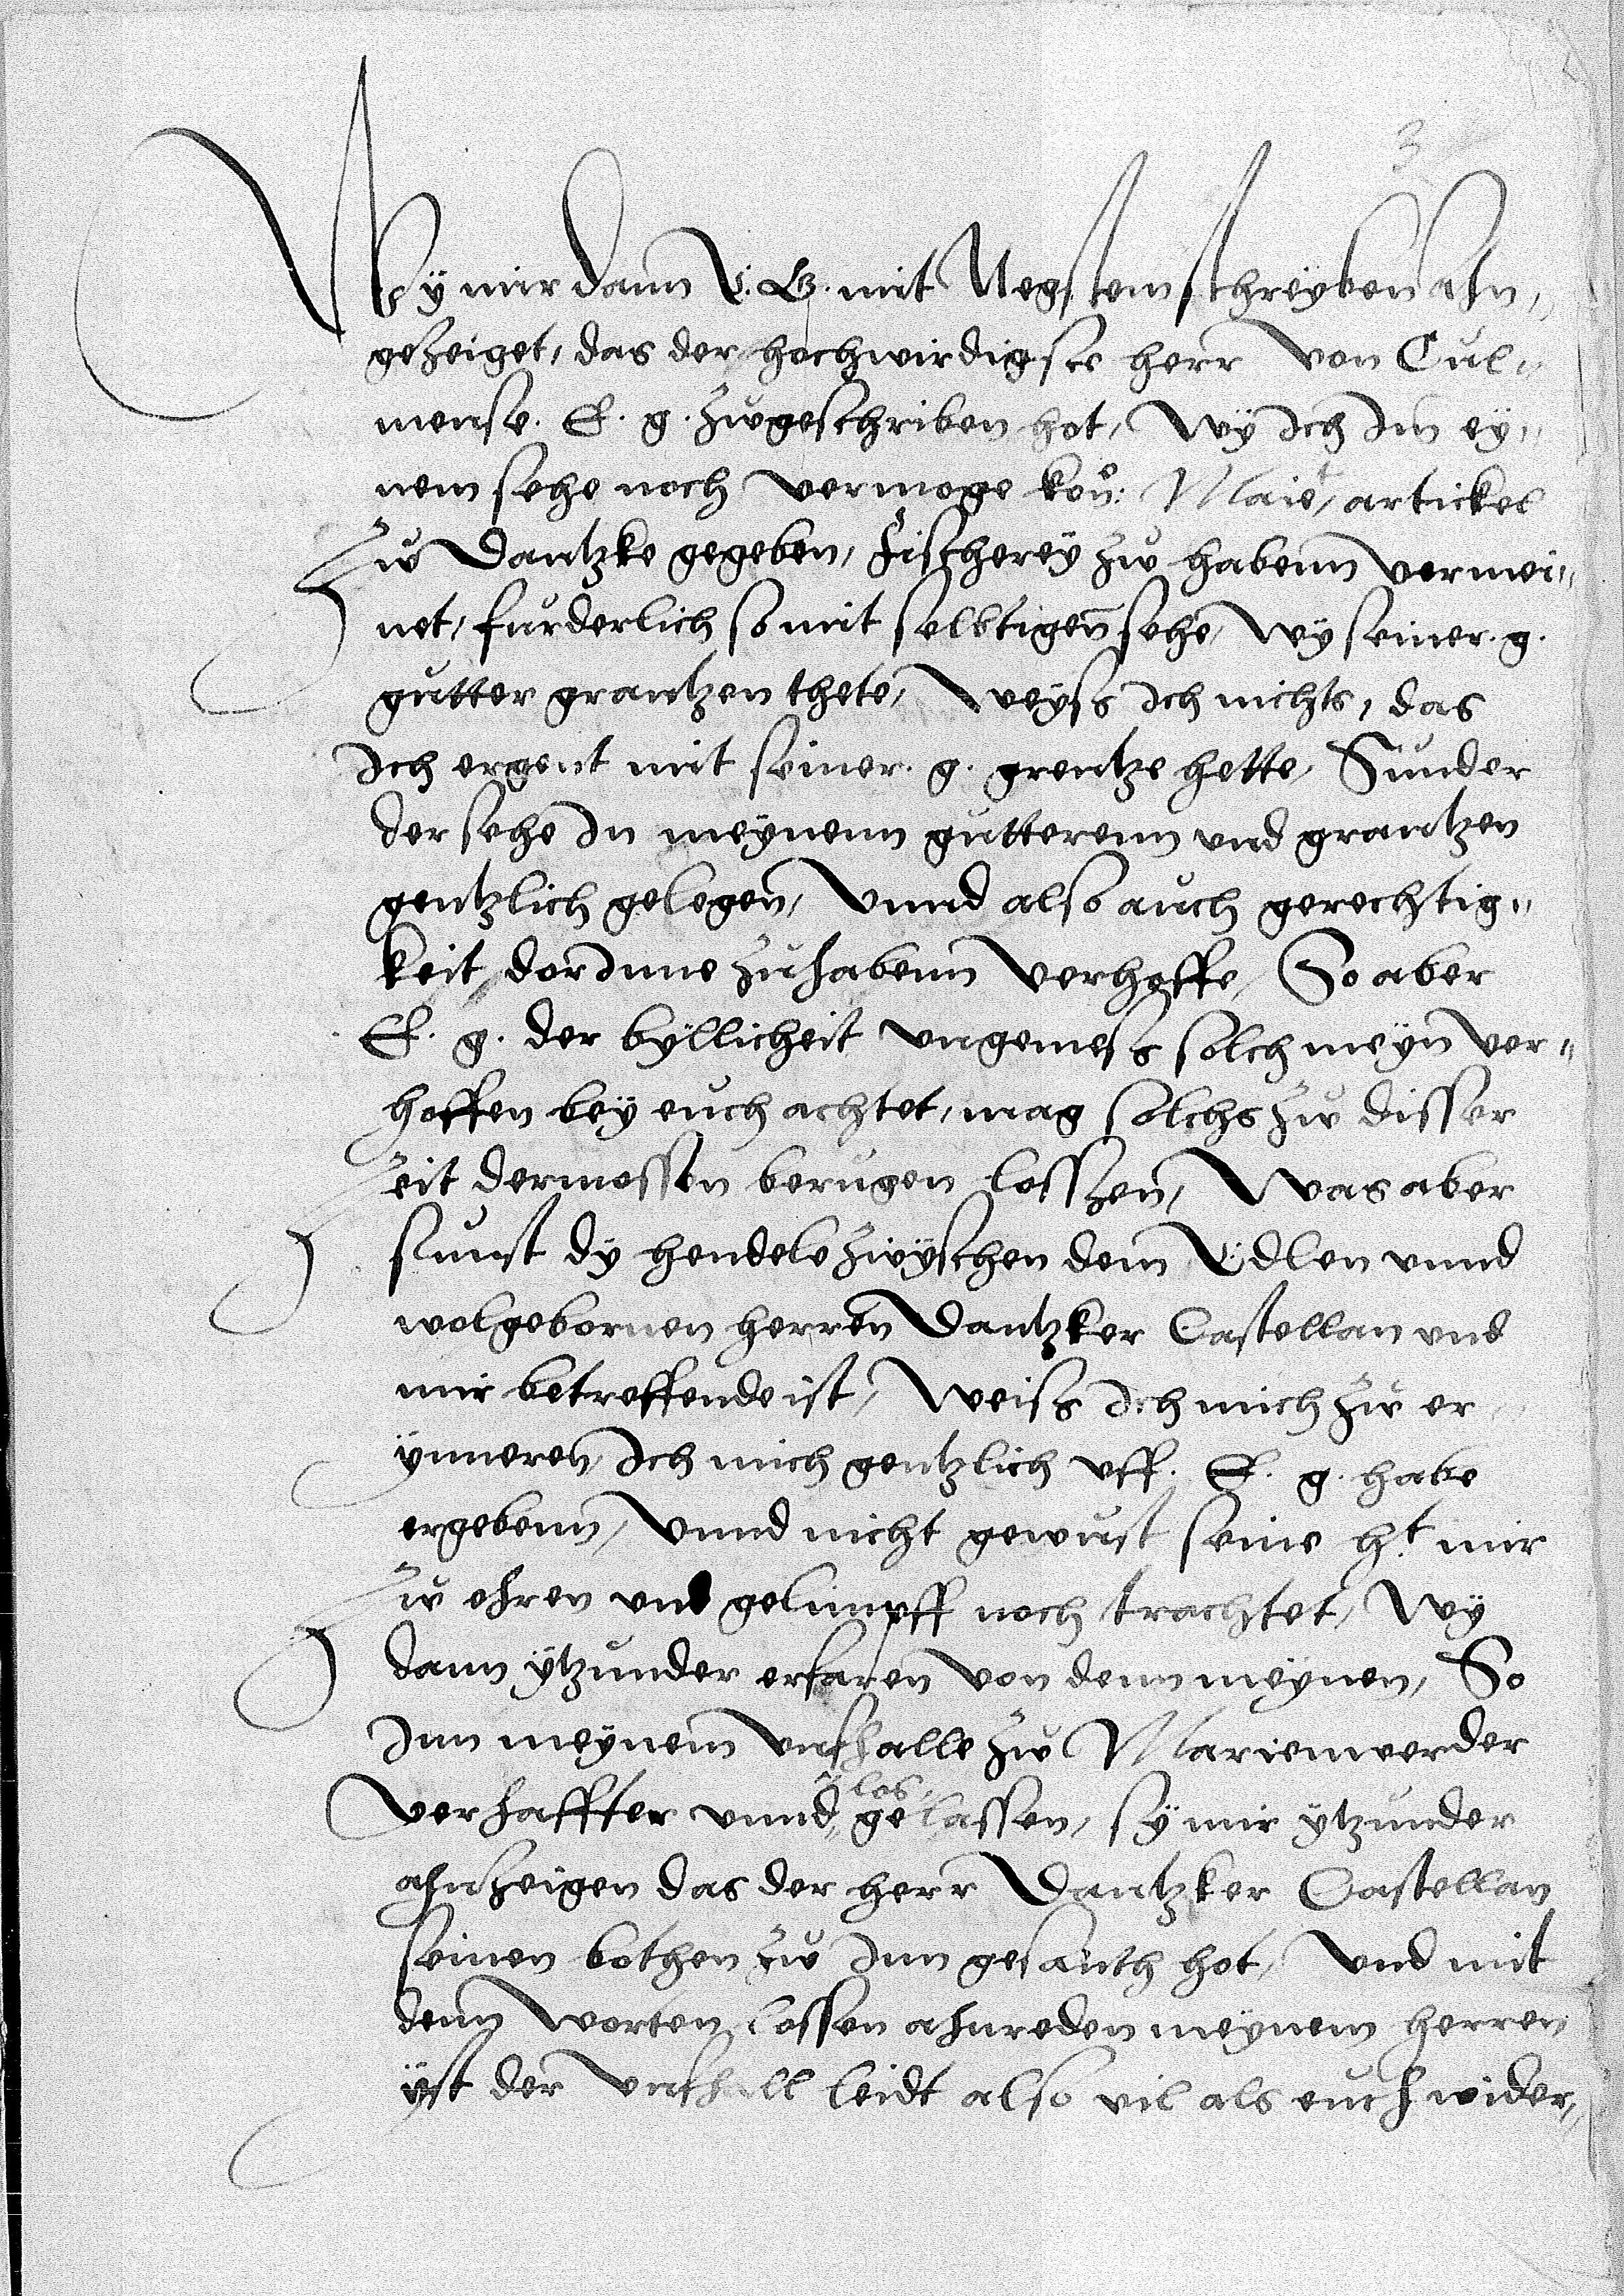 3
Wy mir dann E. G. mit Negstem schreyben ahn„
gezeiget, das der hochwirdigste herr von Cul„
mense. E. g. zwgeschriben hot, wy Ich Inn ey„
nem sehe noch vermoge kon: Maie, artickel
Zw Dantzke gegeben, fischerey zw habenn vermei„
net, furderlich so mit selbtigen sehe, wy seiner. g.
gutter grantzen thete, Weyss Ich nichts, das
Ich ergent mit seiner. g. grentze hette, Sunder
der sehe In meynenn gutterenn vnd grantzen
gentzlich gelegen, Vnnd also auch gerechtig„
keit, dorInne zuhabenn verhoffe, So aber
E. g. der byllicheit vngemess solch meyn ver„
hoffen bey euch achtet, mag solchs zw disser
Zeit dermossen berugen losszen, Was aber
sunst dy hendele zwyschen dem Edlen vnnd
wolgebornen herren Dantzker Castellan vnd
mir betreffende ist, Weiss Ich mich zw er„
ynneren, Ich mich gentzlich vff. E. g. habe
ergebenn, Vnnd nicht gewust seine ht. mir
Zw ehren vnd gelimpff noch trachtet, Wy
dann ytzunder erfaren von denn meynen, So
Inn meynem vnfhalle zw Marienwerder
verhaffter vnnd los gelassen, sy mir ytzunder
ahnzeigen das der herr Dantzker Castellan
seinen bothen zw Inn gesanth hot, vnd mit
denn Worten lossen ahnreden meynem herren
yst der vnfhall leidt also vil als euch wider„